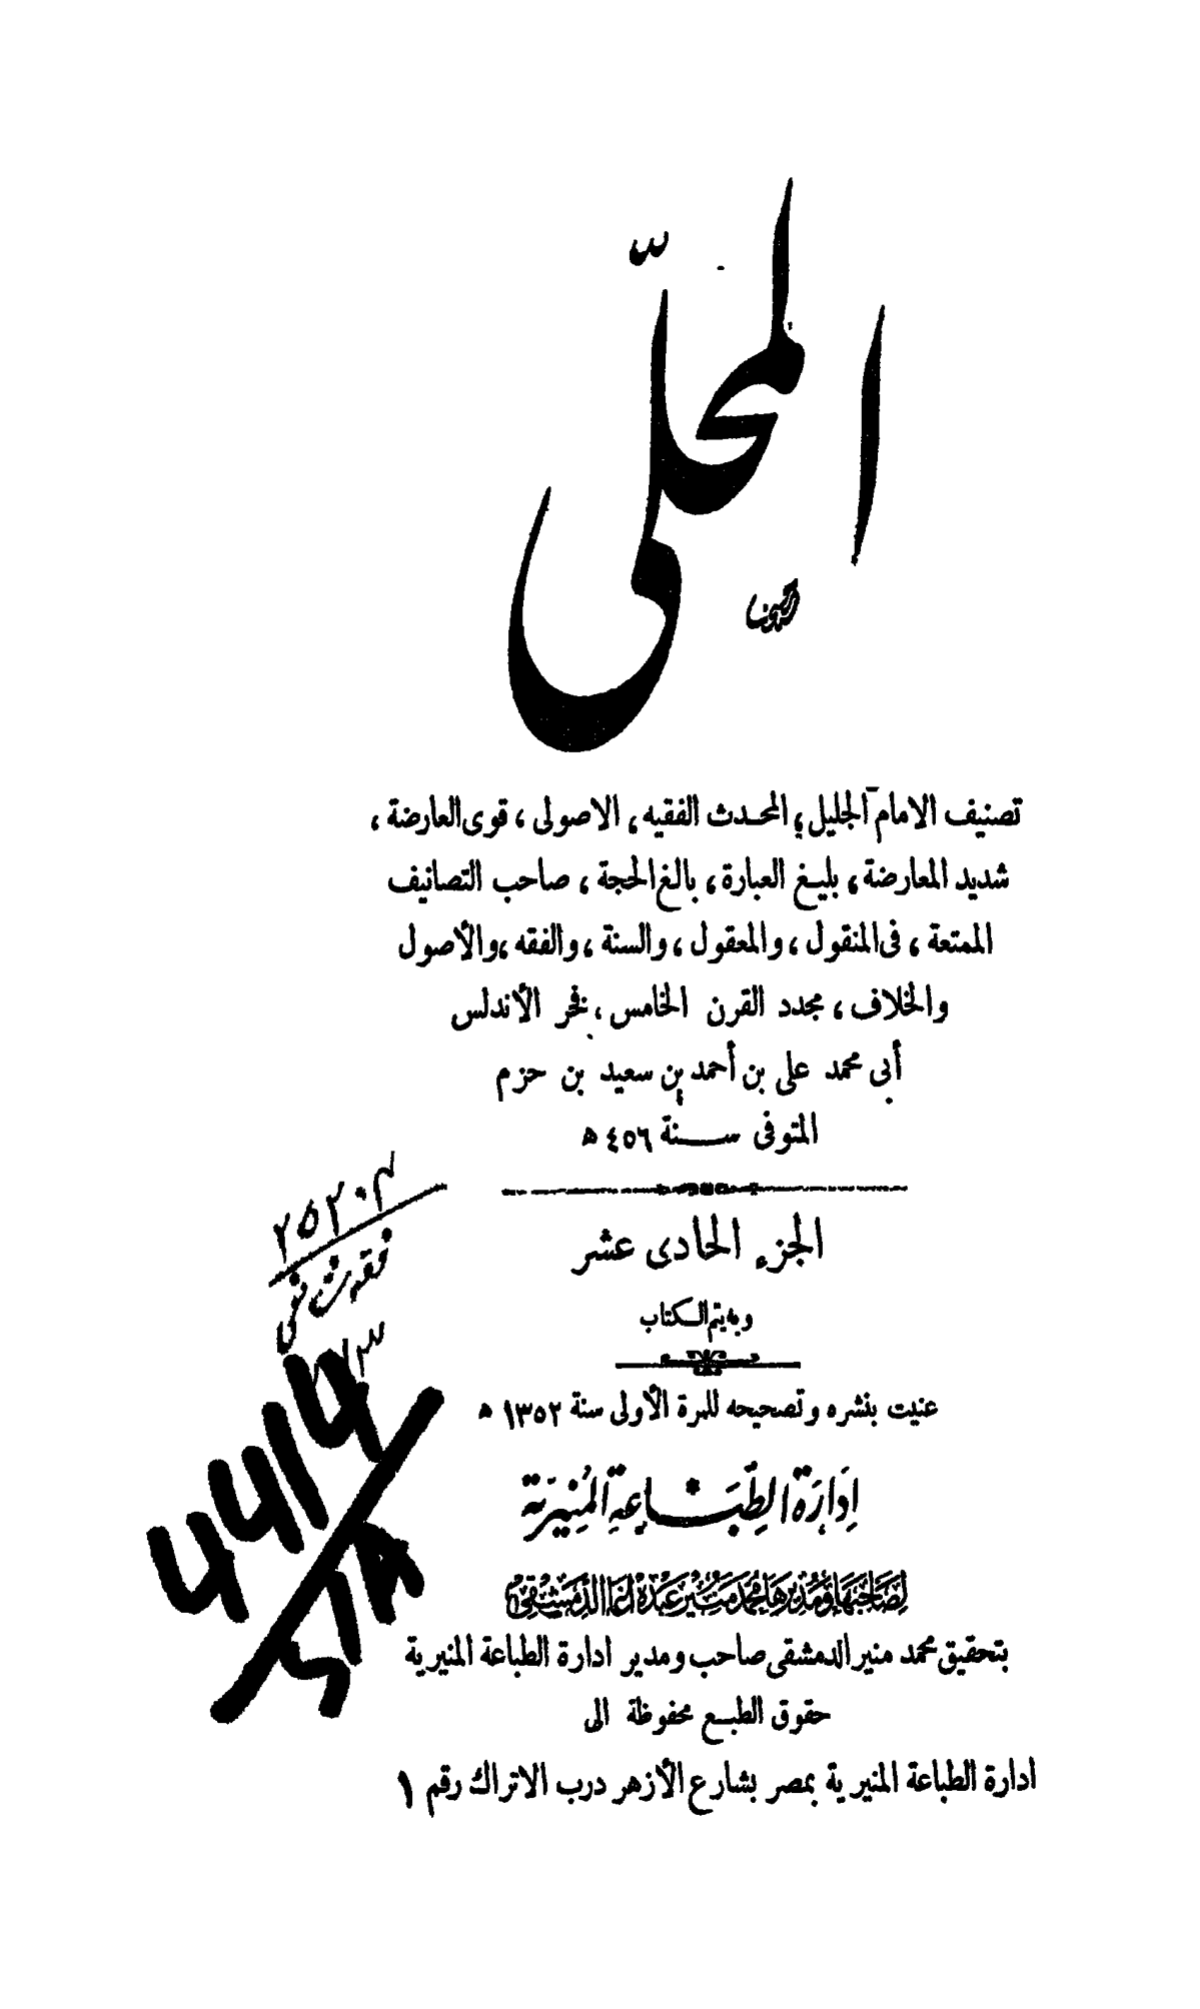 المحلّى
تصنيف الامام الجليل، المحدث الفقيه، الاصولى، قوى العارضة،
شديد المعارضة، بليغ العبارة، بالغ الحجة، صاحب التصانيف
الممتعة، فى المنقول، والمعقول، والسنة، والفقه، والأصول
والخلاف، مجدد القرن الخامس، فخر الأندلس
أبى محمد على بن أحمد بن سعيد بن حزم
المتوفى سنة ٤٥٦ ھ
الجزء الحادى عشر
وبه يتم الكتاب
عنيت بنشره وتصحيحه للمرة الأولى سنة ١٣٥٢ ھ
إِدَارَة الطِّبَاعَةِ المُنِيرِيَّة
لِصَاحِبهَا وَمُدِيرهَا مُحَمَّد مُنِير عَبْدُه أغا الدِّمَشْقِى
بتحقيق محمد منير الدمشقى صاحب ومدير ادارة الطباعة المنيرية
حقوق الطبع محفوظة الى
ادارة الطباعة المنيرية بمصر بشارع الأزهر درب الاتراك رقم ١